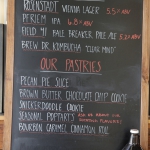 ROSENSTADT VIENNA LAGER 5.5% ABV
PERIEM IPA 6.8% ABV
FIELD #41 HALE BREAKER PALE ALE 5.2% ABV
BREW DR. KOMBUCHA "CLEAR MIND"
OUR PASTRIES
PECAN PIE SLICE
BROWN BUTTER CHOCOLATE CHIP COOKIE
SNICKERDOODLE COOKIE
SEASONAL POPTARTS ASK US ABOUT OUR
SEASONAL FLAVORS!
BOURBON CARAMEL CINNAMON ROLL